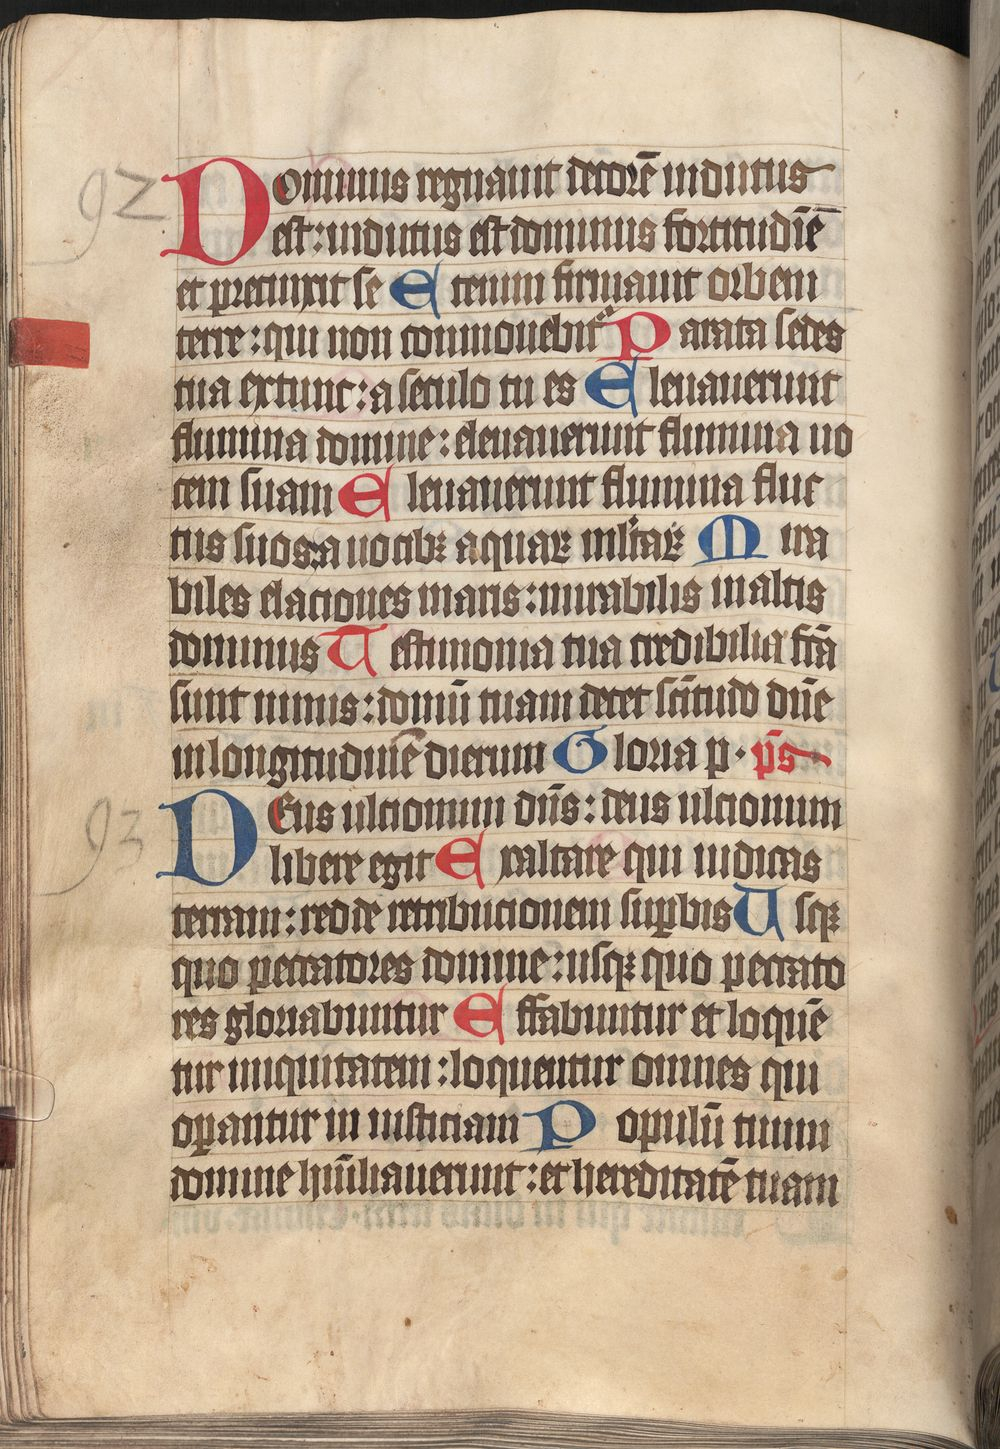 92
Dominus regnauit decorē indutus
est: indutus est dominus fortitudīē
et precinxit se Etenim firmauit orbem
terre: qui non commouebit͛ Parata sedes
tua extunc: a seculo tu es Eleuauerunt
flumina domine: eleuauerunt flumina uo
cem suam Eleuauerunt flumina fluc
tus suos: a uocibꝫ aquaꝝ mĺtaꝝ Mira
biles elaciones maris: mirabilis in altis
dominus Testimonia tua credibilia fc̄a
sunt nimis: domū tuam decet sc̄itudo dn̄e
in longitudinē dierum Gloria p. ps̄
93
Deus ulcionum dn̄s: deus ulcionum
libere egit Exaltare qui iudicas
terram: redde retribucionem suꝑbis Usqꝫ
quo peccatores domine: usqꝫ quo peccato
res gloriabuntur Effabuntur et loquē
tur iniquitatem: loquentur omnes qui
oꝑantur in iusticiam Populū tuum
domine hūiliauerunt: et hereditatē tuam